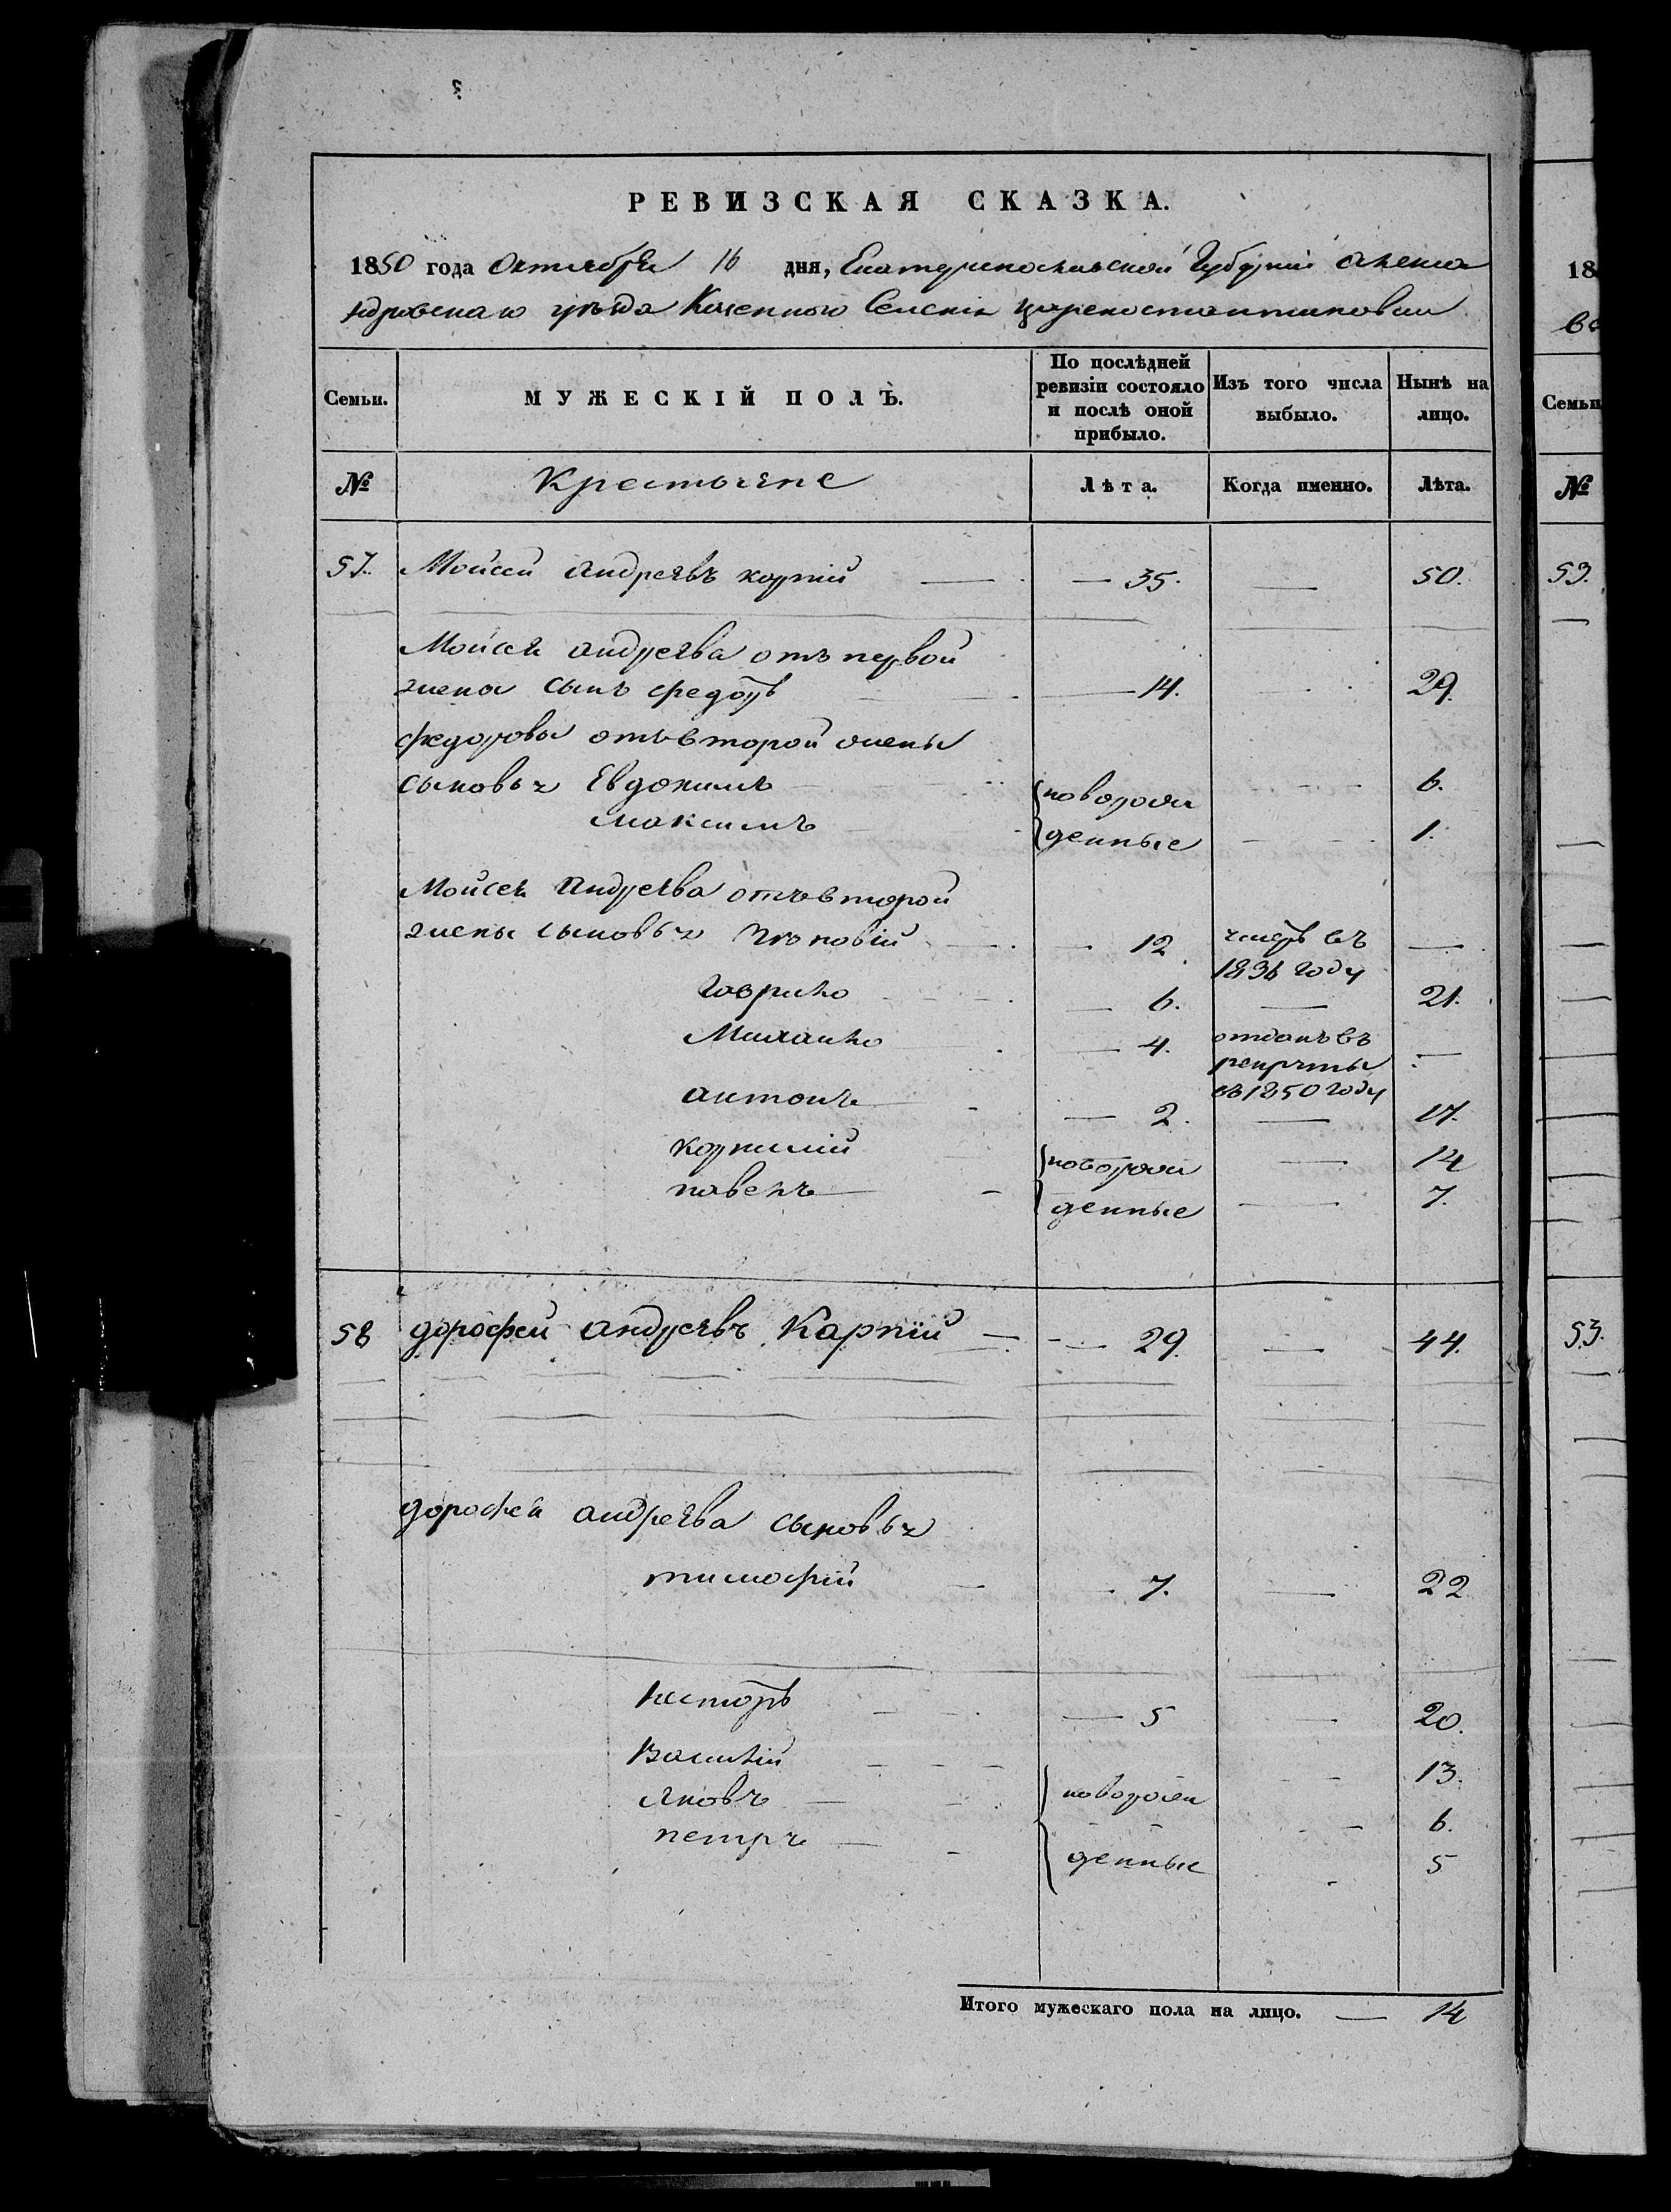 РЕВИЗСКАЯ СКАЗКА.
1850 года Октября 16 дня, Екатеринославской Губерніи Алекса
ндровскаго уѣзда Казенного Селенія Цареконстантиновки
Семьи. МУЖЕСКІЙ ПОЛЪ. По послѣдней ревизіи состояло и послѣ оной прибыло. Изъ того числа выбыло. Нынѣ на лицо.
№ Крестьяне Лѣта. Когда именно. Лѣта.
57. Мойсей андреевъ корній — 35. — 50.
Мойсея андреева отъ первой
жены сынъ федоръ — 14. 29.
федорова отъ второй жены
сыновья Евдокимъ новорож 6.
максимъ денные 1.
Мойсея Андреева отъ второй
жены сыновья — 12. умеръ въ 1836 году —
гаврило — 6. — 21.
Михаило — 4. отданъ въ рекруты въ 1850 году —
антонъ — 2. — 17.
корнилій новорож — 14
павелъ денные — 7.
58 дорофей андреевъ Карпій — 29. — 44.
дорофея андреева сыновья
тимофій — 7. — 22
несторъ — 5 — 20.
Василій 13.
яковъ новорож 6.
петръ денные 5
Итого мужескаго пола на лицо. — 14
18
Семьи
№
53.
53.